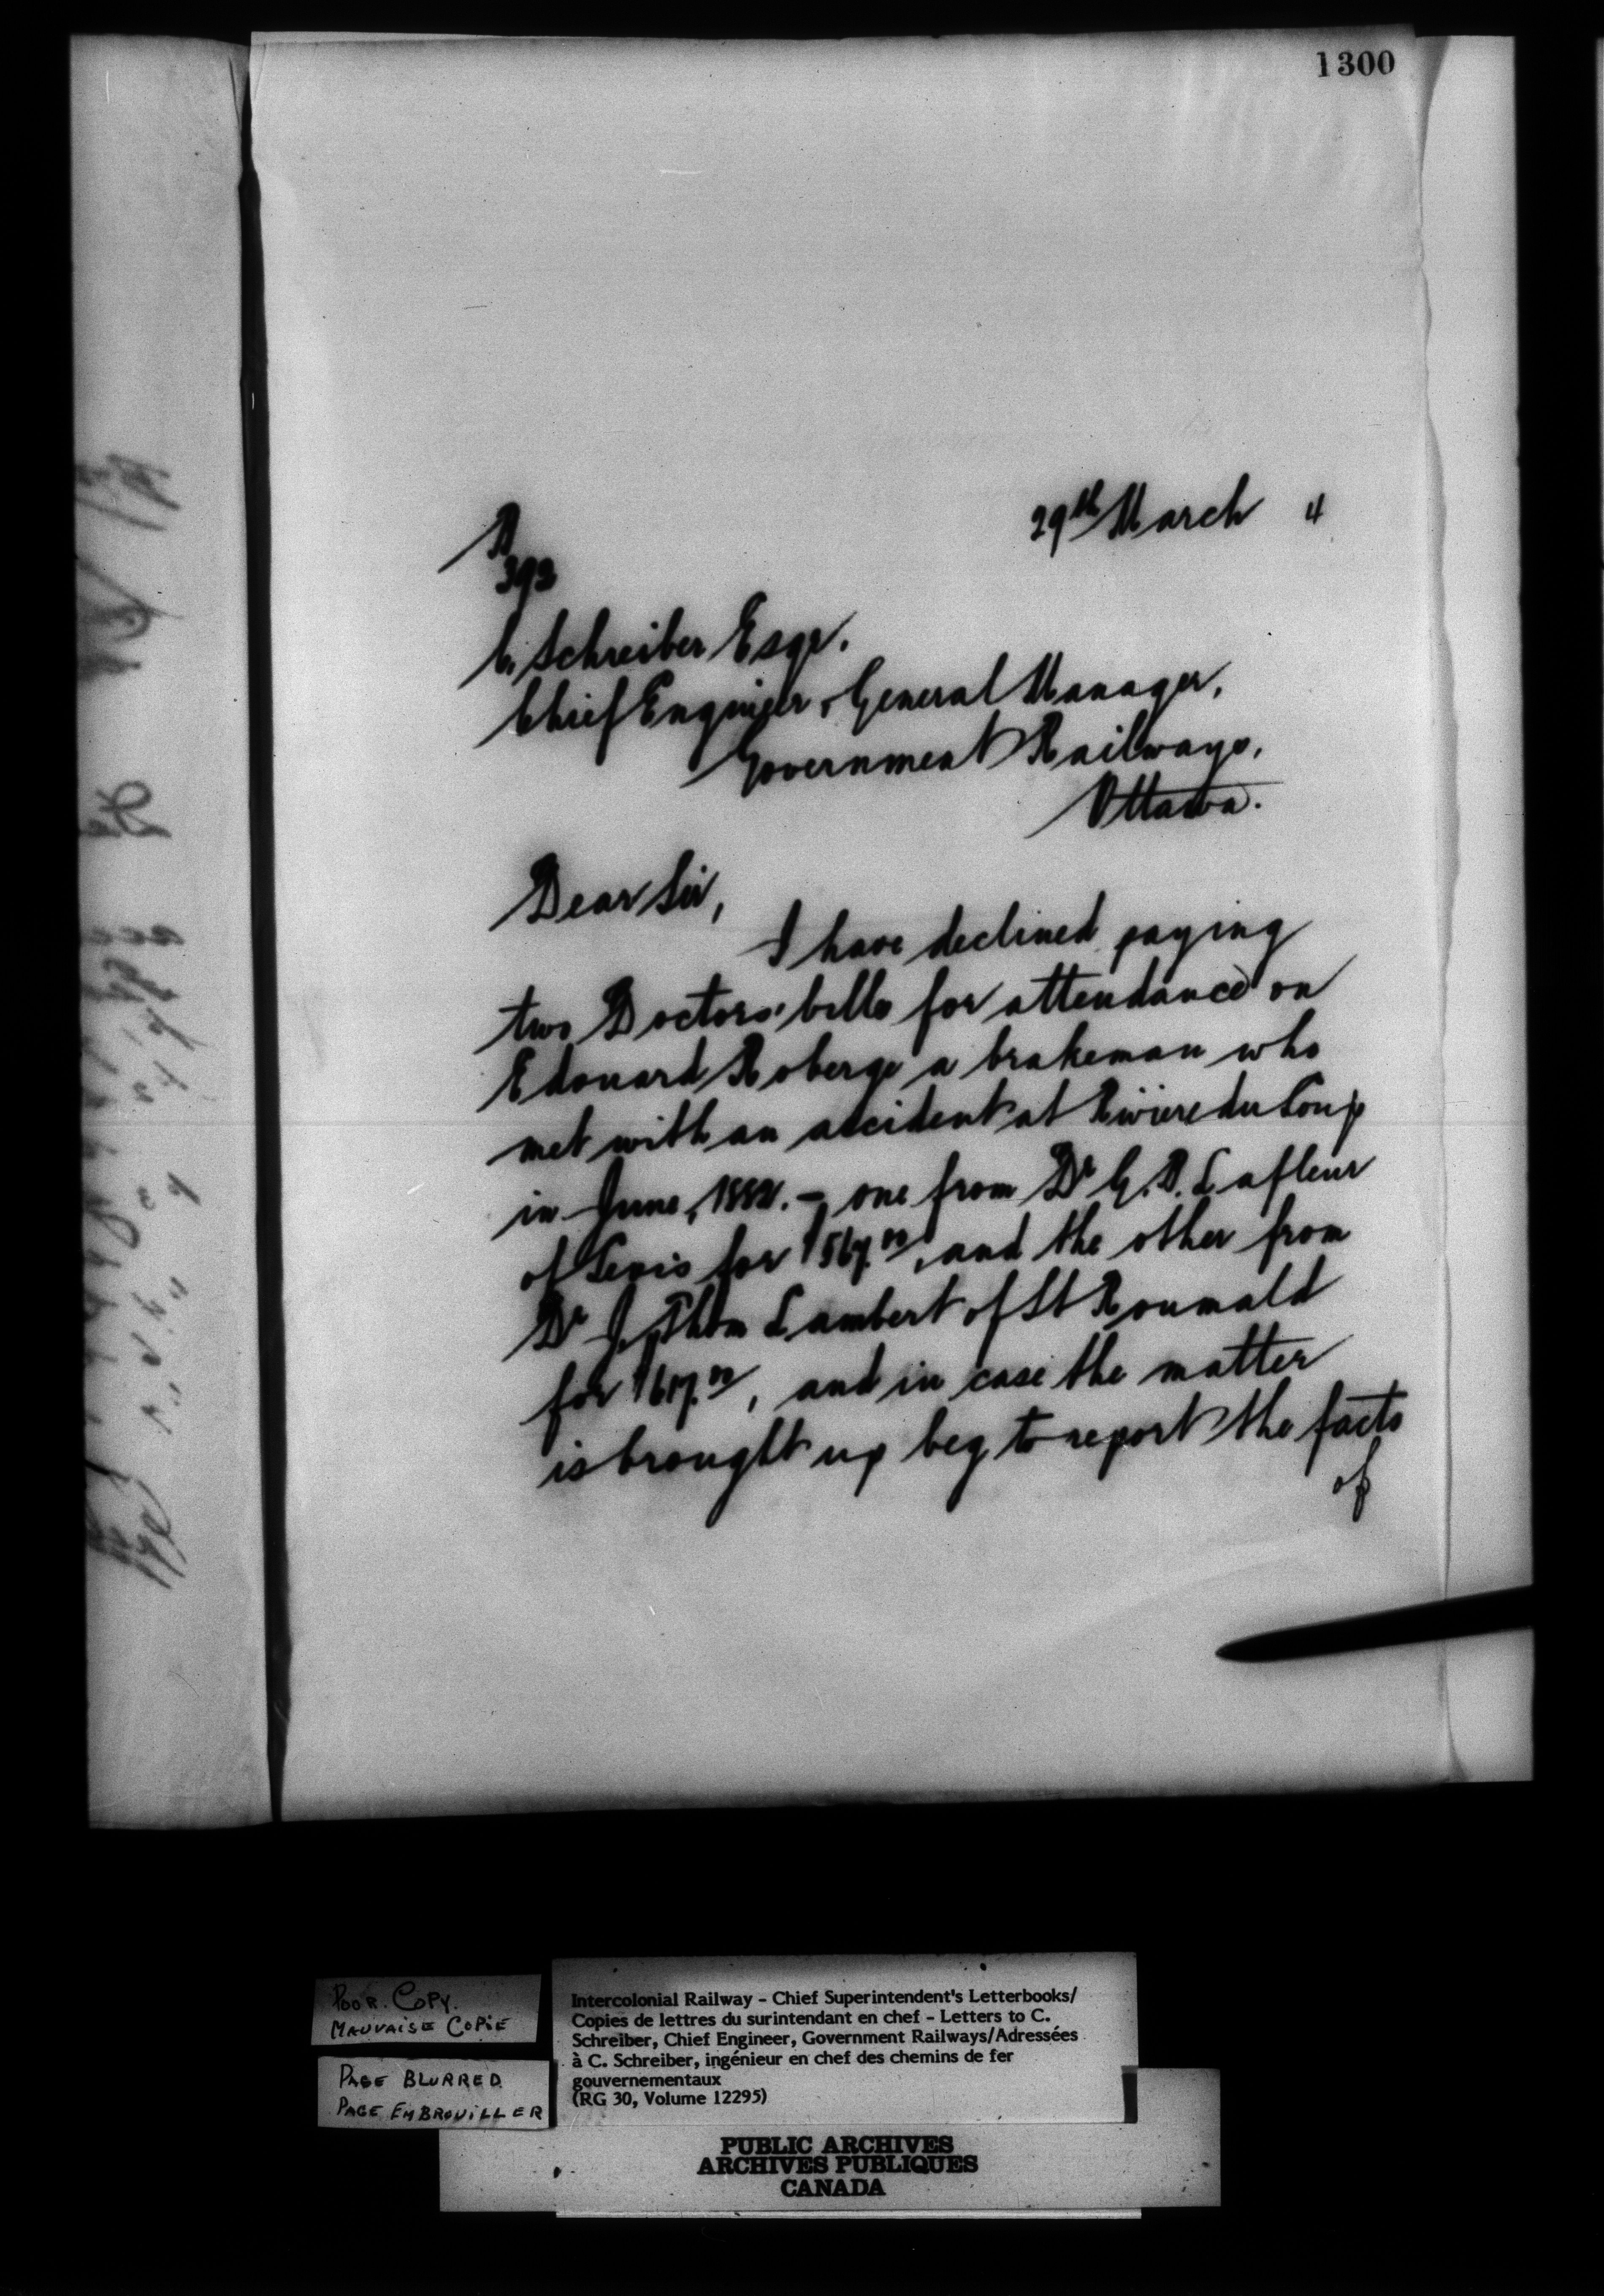 1300
29th March 4
R
393
C. Schreiber Esqr.
Chief Engineer & General Manager,
Government Railways,
Ottawa.
Dear Sir,
I have declined paying
two Doctors' bills for attendance on
Edouard Roberge a brakeman who
met with an accident at Riviere du Loup
in June, 1882. — one from Dr G. P. Lafleur
of Levis for $567.00, and the other from
Dr J. Thom Lambert of St Roumald
for $617.00, and in case the matter
is brought up beg to report the facts
of
POOR COPY.
MAUVAISE COPIE
PAGE BLURRED
PAGE EMBROUILLER
Intercolonial Railway – Chief Superintendent's Letterbooks/
Copies de lettres du surintendant en chef – Letters to C.
Schreiber, Chief Engineer, Government Railways/Adressées
à C. Schreiber, ingénieur en chef des chemins de fer
gouvernementaux
(RG 30, Volume 12295)
PUBLIC ARCHIVES
ARCHIVES PUBLIQUES
CANADA